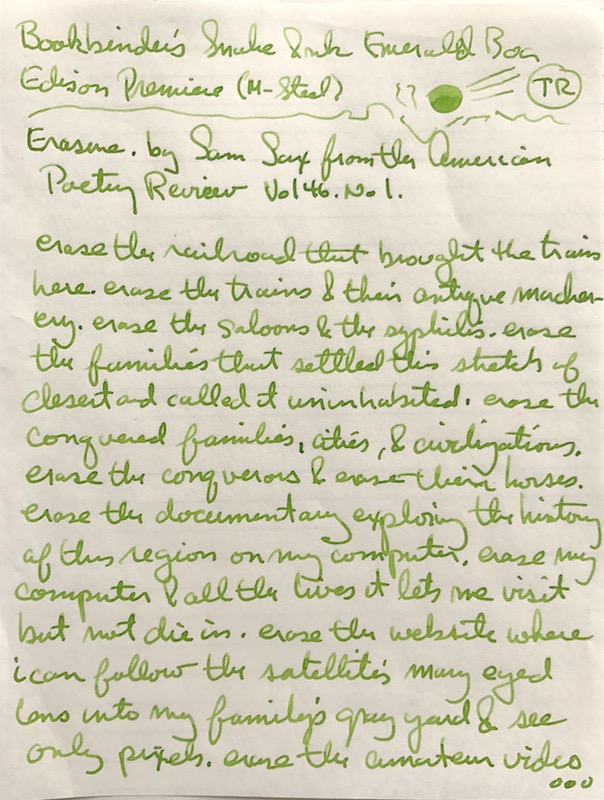 Bookbinder's Snake Ink Emerald Boa
Edison Premiere (M-Steel)
TR
Erasure. by Sam Sax from the American
Poetry Review Vol 46. No 1.
erase the railroad that brought the trains
here. erase the trains & their antique machin-
ery. erase the saloons & the syphilis. erase
the families that settled this stretch of
desert and called it uninhabited. erase the
conquered families, cities, & civilizations.
erase the conquerors & erase their horses.
erase the documentary exploring the history
of this region on my computer. erase my
computer & all the lives it lets me visit
but not die in. erase the website where
i can follow the satellite's many eyed
lens into my family's gray yard & see
only pixels. erase the amateur video
...